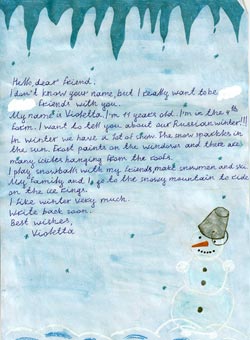 Hello, dear friend.
I don't know your name, but I really want to be
friends with you.
My name is Violetta. I'm 11 years old. I'm in the
form. I want to tell you about our Russian winter!!!
In winter we have a lot of snow. The snow sparkles in
the sun. Frost paints on the windows and there are
many icicles hanging from the roofs.
I play snowballs with my friends, make snowmen and ski.
My family and I go to the snowy mountain to ride
on the ice rings.
I like winter very much.
Write back soon.
Best wishes,
Violetta